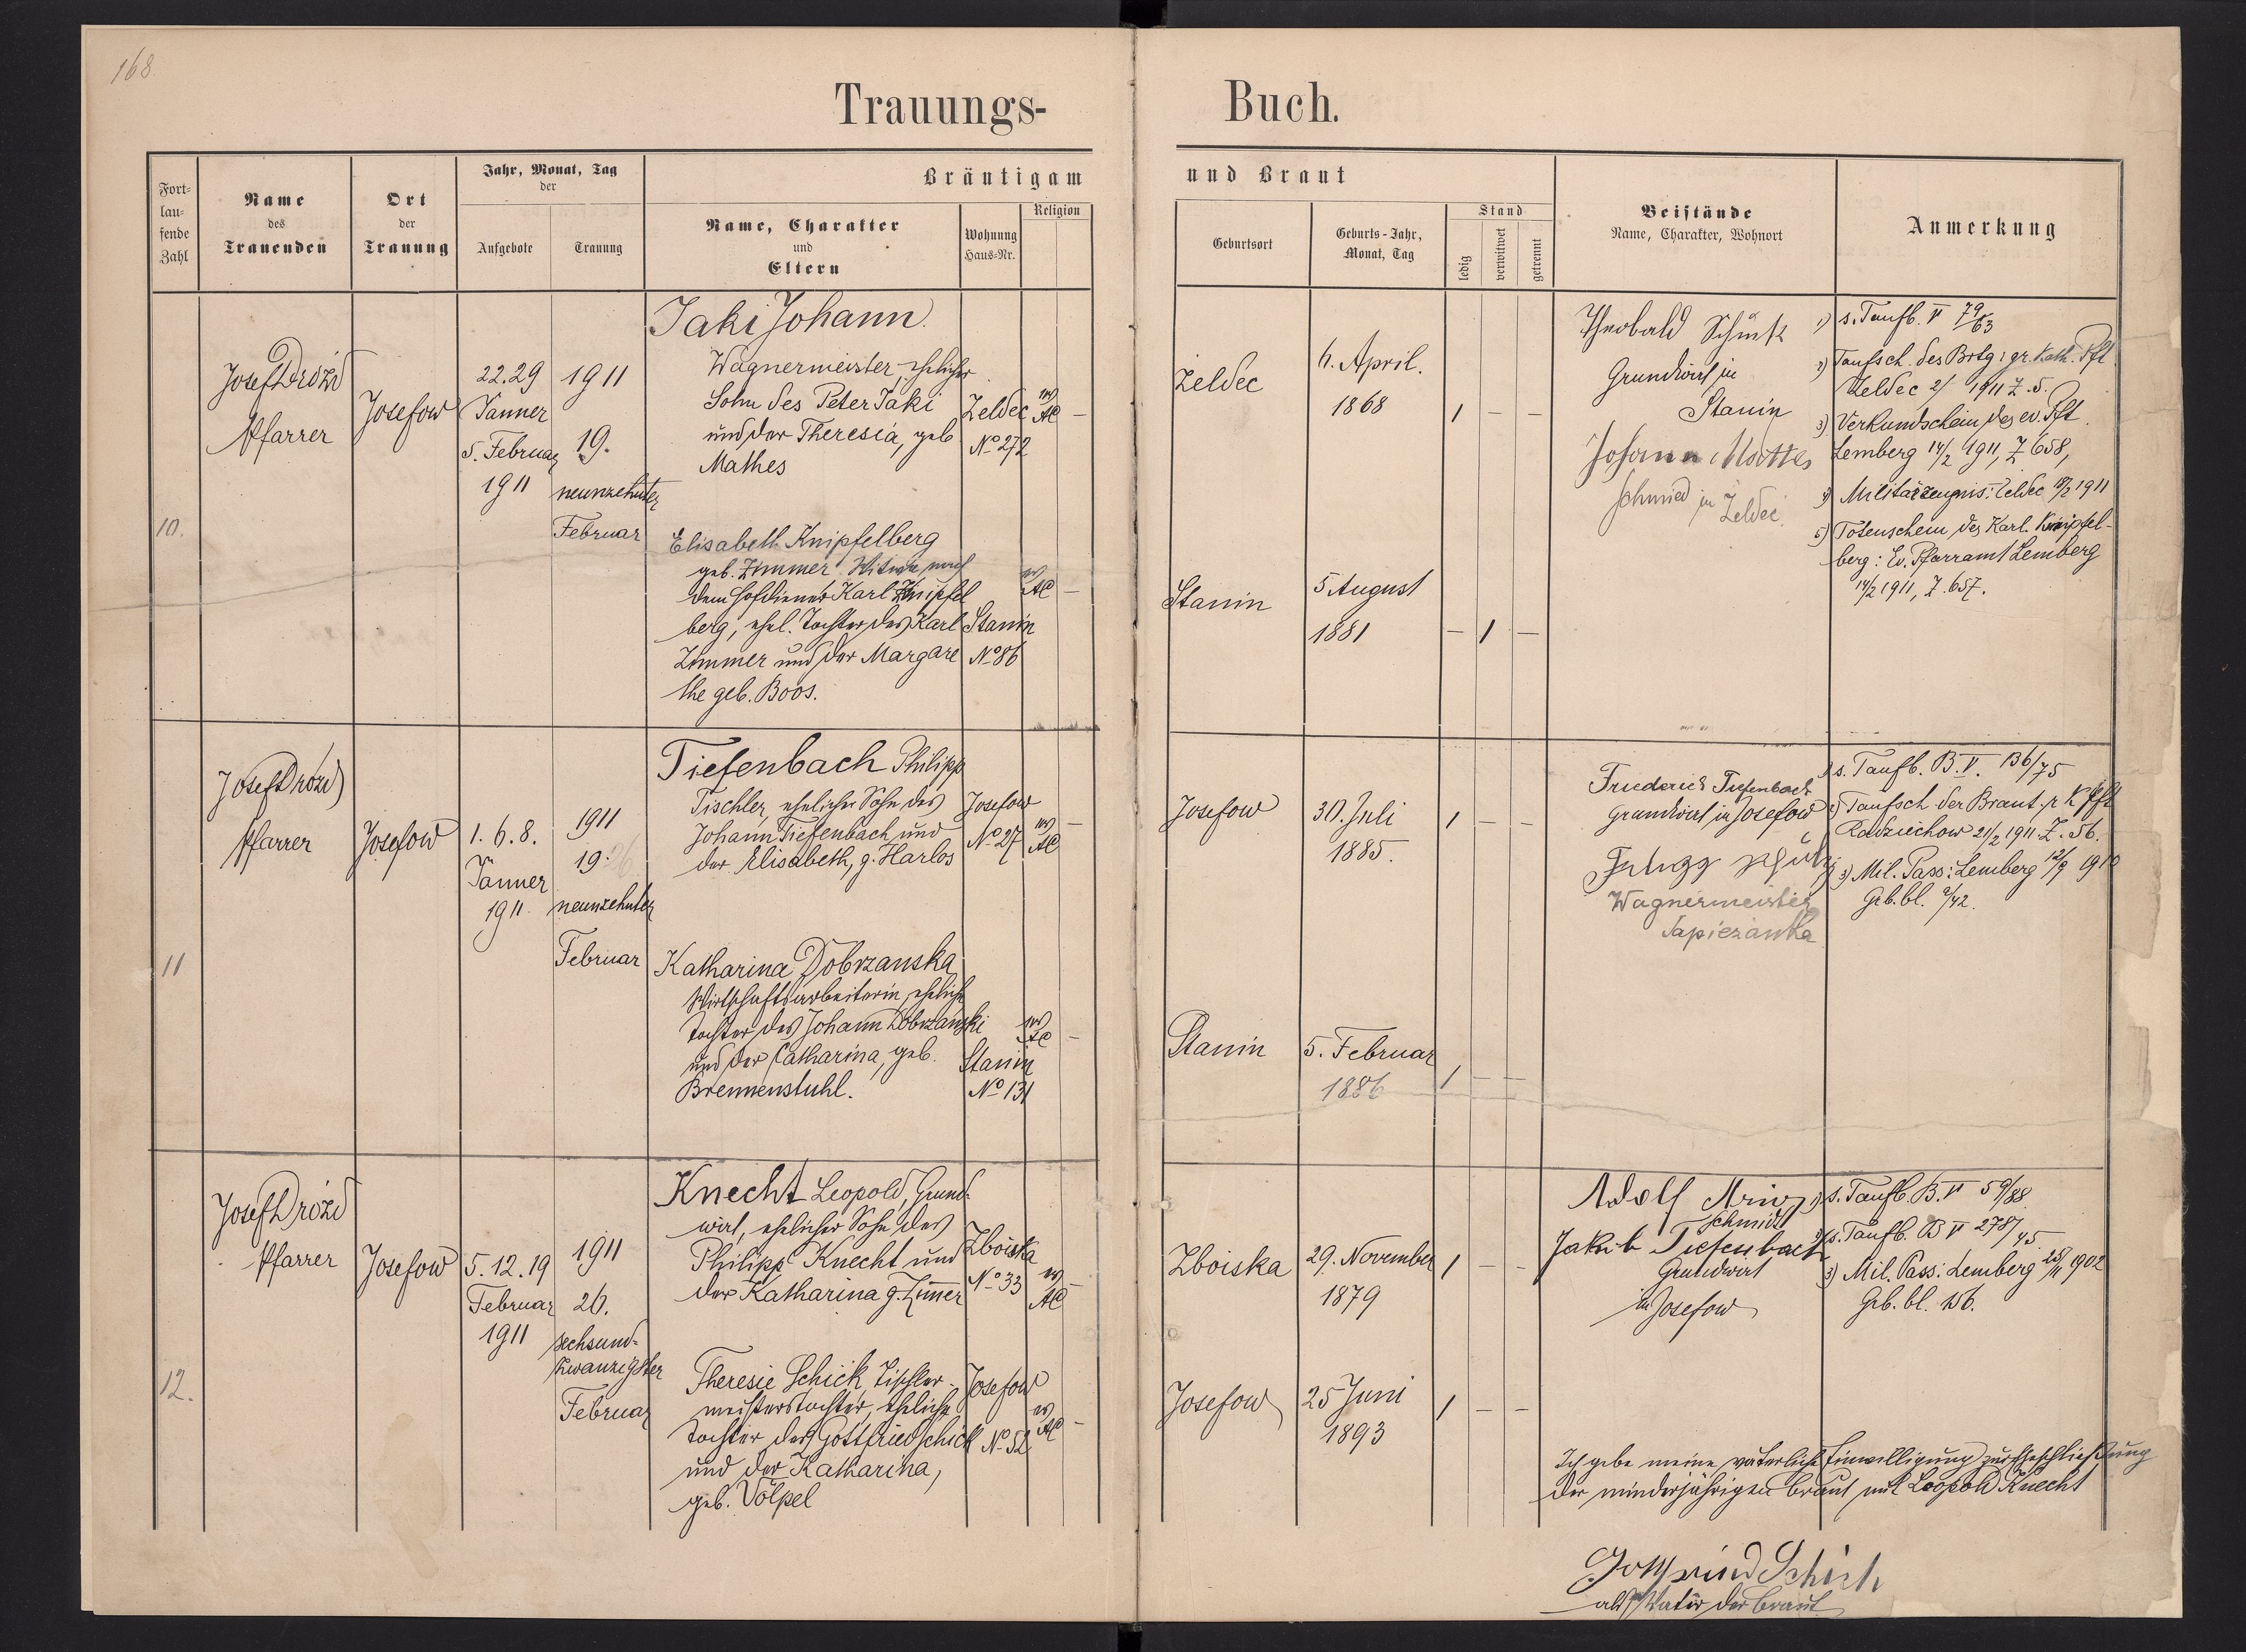 168
Trauungs-
Buch.
Fort-
lau-
fende
Zahl
Name
des
Trauenden
Ort
der
Trauung
Jahr, Monat, Tag
der
Aufgebote
Trauung
Bräutigam
Name, Charakter
und
Eltern
Wohnung
Haus-Nr.
Religion
und Braut
Geburtsort
Geburts-Jahr,
Monat, Tag
Stand
ledig
verwitwet
getrennt
Beistände
Name, Charakter, Wohnort
Anmerkung
10.
Josef Drózd
Pfarrer
Josefow
22.29
Janner
5. Februar
1911
1911
19.
neunzehnter
Februar
Jaki Johann
Wagnermeister, ehelicher
Sohn des Peter Jaki
und der Theresia, geb
Mathes
Zeldec
No 272
AC –
Elisabeth Knipfelberg
geb. Zimmer Witwe nach
dem Hofdiener Karl Knipfel
berg, ehel. Tochter des Karl
Zimmer und der Margare
the geb. Boos.
Stanin
No 86
AC –
Zeldec
4. April.
1868
1 – –
Stanin
5 August
1881
– 1 –
Theobald Schück
Grundwirt in
Stanin
Johann Mattes
Schmied in Zeldec.
1) s. Taufb. V 79/63
2) Taufsch. des Brtg: gr. Kath. Pft
Zeldec 2/ 1911 Z. 5.
3) Verkundschein des ev. Pft.
Lemberg 14/2 1911, Z 658,
4) Militärzeugnis: Zeldec 18/2 1911
5) Totenschein des Karl Knipfel-
berg: Ev. Pfarramt Lemberg
14/2 1911, Z. 657.
11
Josef Drózd
Pfarrer
Josefow
1. 6. 8.
Janner
1911
1911
19.
neunzehnter
Februar
Tiefenbach Philipp
Tischler, ehelicher Sohn des
Johann Tiefenbach und
der Elisabeth, g. Harlos
Josefow
No 27
AC –
Katharina Dobrzanska
Wirtschaftsarbeiterin, eheliche
Tochter des Johann Dobrzanski
und der Catharina, geb.
Brennenstuhl.
Stanin
No 131
AC –
Josefow
30. Juli
1885.
1 – –
Stanin
5. Februar
1886
1 – –
Friederich Tiefenbach
Grundwirt in Josefow
Wagnermeister
Sapiezanka
1) s. Taufb. B. V. 136/75
2) Taufsch. der Braut. r K Pft
Radziechow 21/2 1911 Z. 56.
3) Mil. Pass: Lemberg 12/9 1910
Grb. bl. 9/42.
12.
Josef Drózd
Pfarrer
Josefow
5. 12. 19
Februar
1911
1911
26.
sechsund-
zwanzigster
Februar
Knecht Leopold, Grund-
wirt, ehelicher Sohn des
Philipp Knecht und
der Katharina g. Zimer
Zboiska
No 33
AC –
Theresie Schick, Tischler-
meisterstochter, eheliche
Tochter des Gottfried Schick
und der Katharina,
geb. Völpel
Josefow
No 52
AC –
Zboiska
29. November
1879
1 – –
Josefow
25 Juni
1893
1 – –
Adolf
Schmidt
Jakob Tiefenbach
Grundwirt
in Josefow
1) s. Taufb. B. V 59/88
2) s. Taufb. B V 278/45
3) Mil. Pass: Lemberg 28/11 1902
Grb. bl. 156.
Ich gebe meine väterliche Einwilligung zur Eheschließung
der minderjährigen Braut mit Leopold Knecht
Gottfried Schick
als Vater der Braut